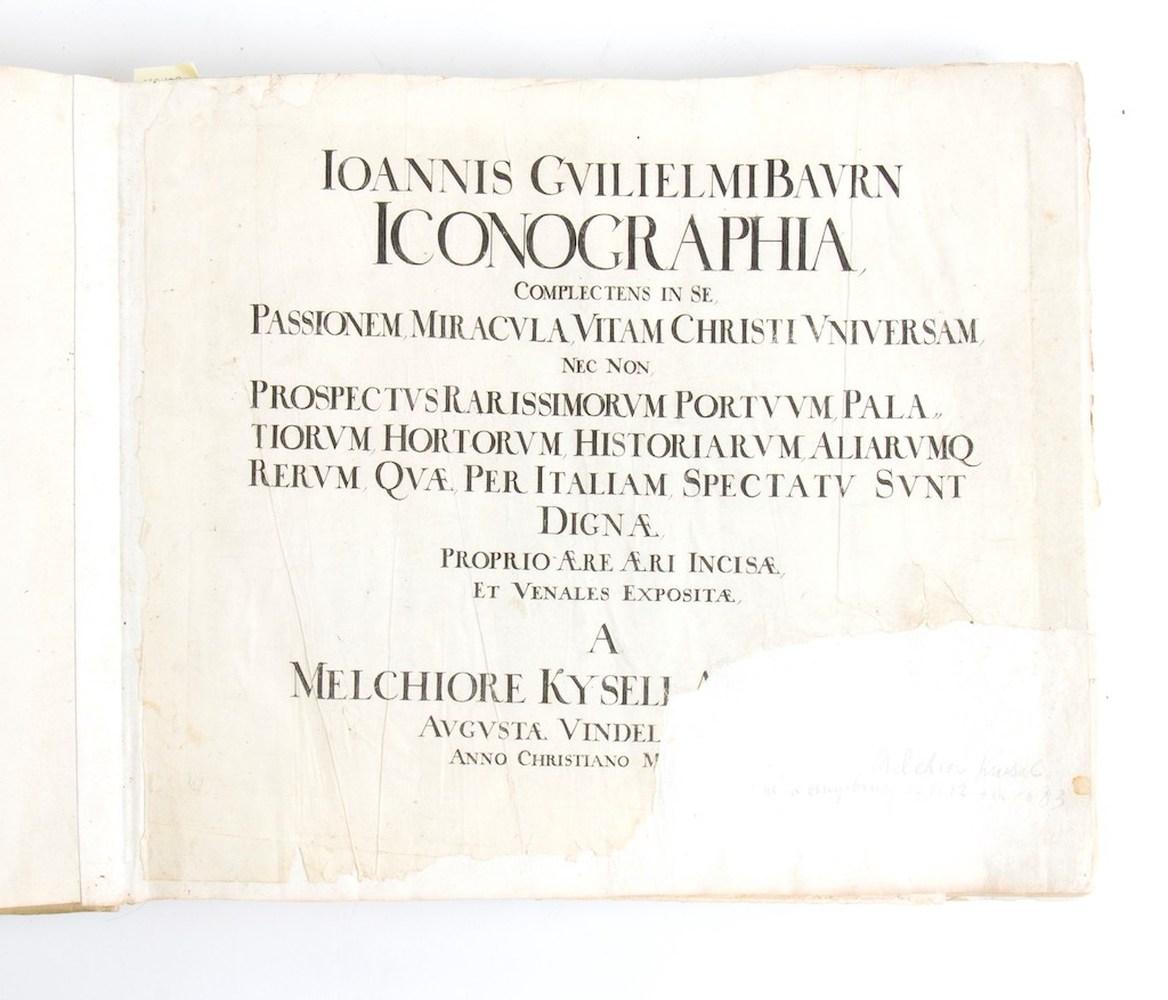 IOANNIS GVILIELMI BAVRN
ICONOGRAPHIA,
COMPLECTENS IN SE,
PASSIONEM, MIRACVLA, VITAM CHRISTI VNIVERSAM,
NEC NON,
PROSPECTVS RARISSIMORVM PORTVVM, PALA„
TIORVM, HORTORVM, HISTORIARVM, ALIARVMQ
RERVM, QVÆ, PER ITALIAM, SPECTATV SVNT
DIGNÆ,
PROPRIO ÆRE ÆRI INCISÆ,
ET VENALES EXPOSITÆ,
A
MELCHIORE KYSELL A
AVGVSTÆ. VINDEL
ANNO CHRISTIANO M
Melchior Küsel